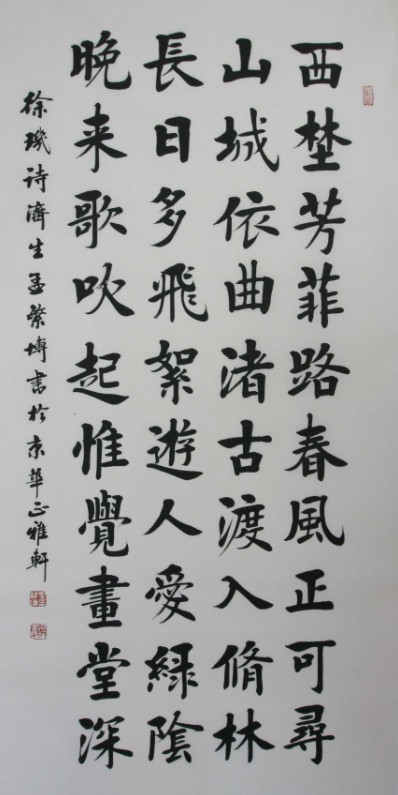 西埜芳菲路春風正可尋
山城依曲渚古渡入脩林
長日多飛絮遊人愛緑陰
晚来歌吹起惟覺畫堂深
徐璣诗濟生孟繁博書於京華正雅軒